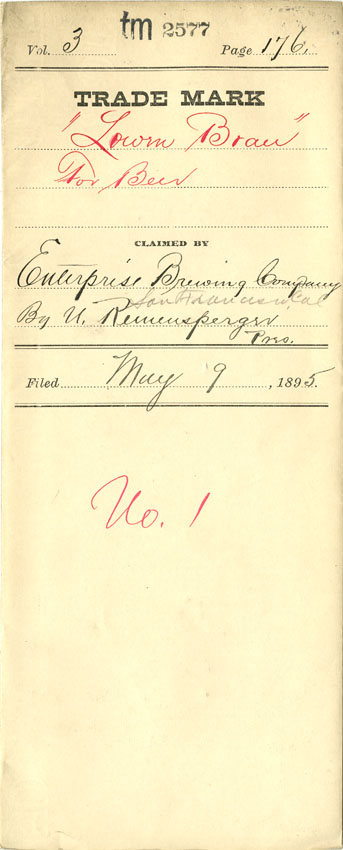 tm 2577
Vol. 3 Page 176.
TRADE MARK
"Lowm Brau"
For Beer
CLAIMED BY
Enterprise Brewing Company
San Francisco Cal
By U. Remensperger
Pres.
Filed May 9, 1895.
No. 1